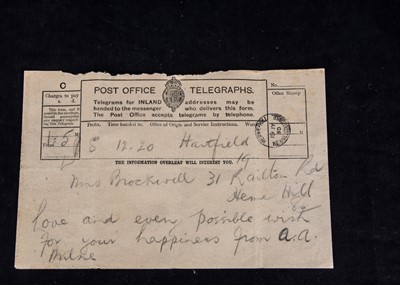 C
POST OFFICE TELEGRAPHS.
No.
Charges to pay
s. d.
Telegrams for INLAND addresses may be
handed to the messenger who delivers this form.
The Post Office accepts telegrams by telephone.
Office Stamp
Prefix. Time handed in. Office of Origin and Service Instructions. Words.
S 12.20 Hartfield 19
THE INFORMATION OVERLEAF WILL INTEREST YOU.
Mrs Brockwell 31 Railton Rd
Herne Hill
love and every possible wish
for your happiness from A.A.
Milne